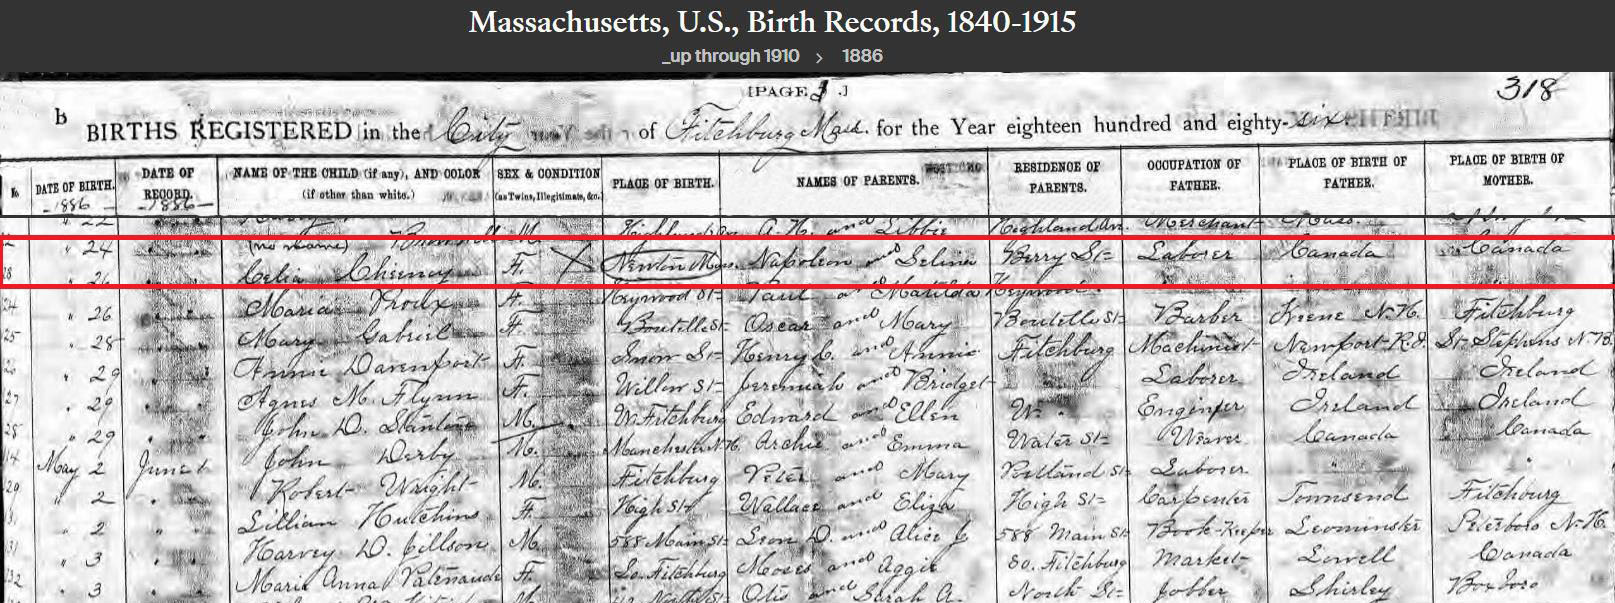 Massachusetts, U.S., Birth Records, 1840-1915
_up through 1910 > 1886
[PAGE 1.]
318
b
BIRTHS REGISTERED in the City of Fitchburg Mass. for the Year eighteen hundred and eighty-six
No DATE OF BIRTH. 1886 DATE OF RECORD. 1886 NAME OF THE CHILD (if any), AND COLOR (if other than white.) SEX & CONDITION (as Twins, Illegitimate, &c.) PLACE OF BIRTH. NAMES OF PARENTS. RESIDENCE OF PARENTS. OCCUPATION OF FATHER. PLACE OF BIRTH OF FATHER. PLACE OF BIRTH OF MOTHER.
" 22 M. Highland Av. A. H. and Libbie Highland Av. Merchant Mass.
" 24 (no name)
" 26 Celia Chieney F. Newton Mass. Napoleon and Selina Berry St= Laborer Canada Canada
24 " 26 Maria Proulx F. Heywood St= Paul Matilda Heywood
25 " 28 Mary Gabriel F. Boutelle St= Oscar and Mary Boutelle St= Barber Keene N.H. Fitchburg
" 29 Annie Davenport F. Snow St= Henry C. and Annie Fitchburg Machinist Newport R.I. St Stephens N.B.
27 " 29 Agnes M. Flynn F. Willow St= Jeremiah and Bridget Laborer Ireland Ireland
28 " 29 John D. Stanton M. W. Fitchburg Edward and Ellen W. Engineer Ireland Ireland
May 2 June 1 John Derby M. Manchester N.H. Archie and Emma Water St= Weaver Canada Canada
" 2 Robert Wright M. Fitchburg Peter and Mary Rolland St= Laborer " "
" 2 Lillian Hutchins F. High St= Wallace and Eliza High St= Carpenter Townsend Fitchburg
31 " 3 Harvey D. Jillson M. 588 Main St= Leon D. and Alice J 588 Main St= Book-Keeper Leominster Peterboro N.H.
32 " 3 Marie Anna Patenaude F. So. Fitchburg Moses and Aggie So. Fitchburg Market Lowell Canada
Otis and Sarah A. North St= Jobber Shirley Boxboro